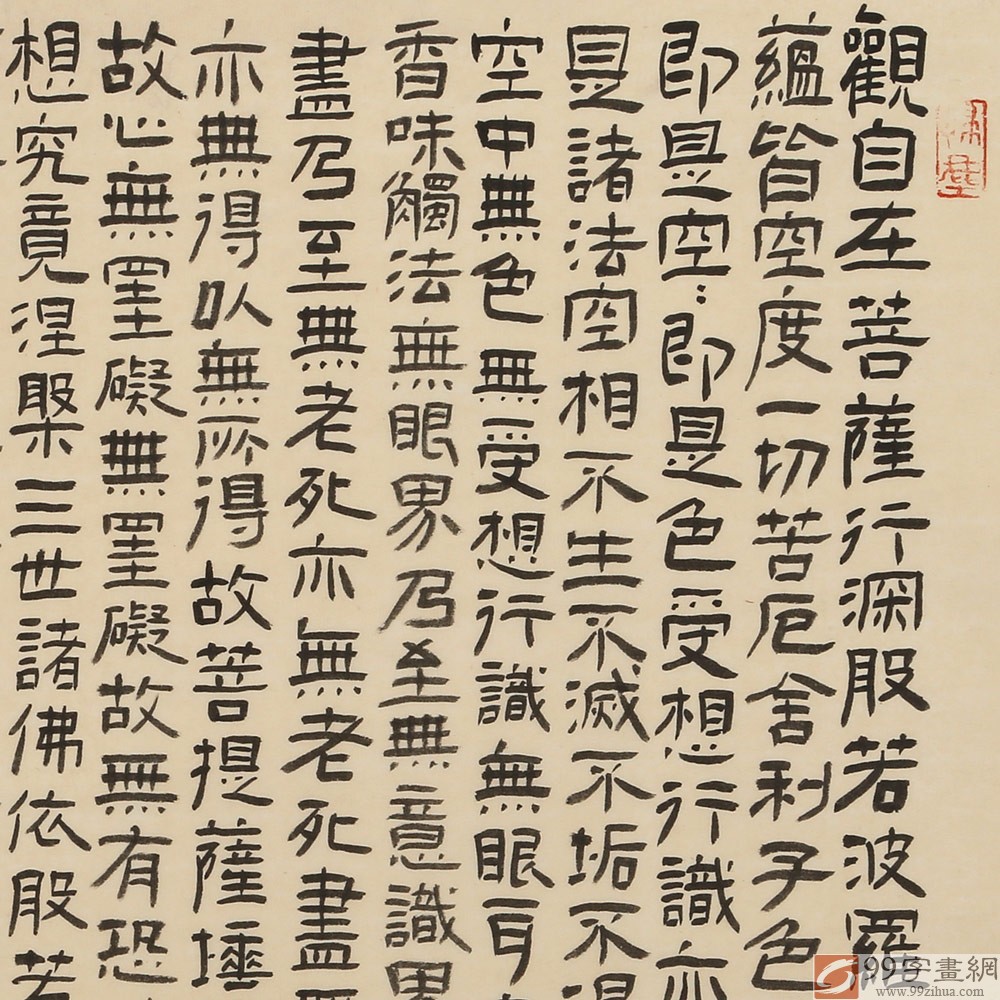 觀自在菩薩行深般若波羅
蘊皆空度一切苦厄舍利子色
即是空〻即是色受想行識亦
是諸法空相不生不滅不垢不
空中無色無受想行識無眼耳
香味觸法無眼界乃至無意識界
盡乃至無老死亦無老死盡
亦無得以無所得故菩提薩埵
故心無罣礙無罣礙故無有恐
想究竟涅槃三世諸佛依般若
99字畫網
www.99zihua.com